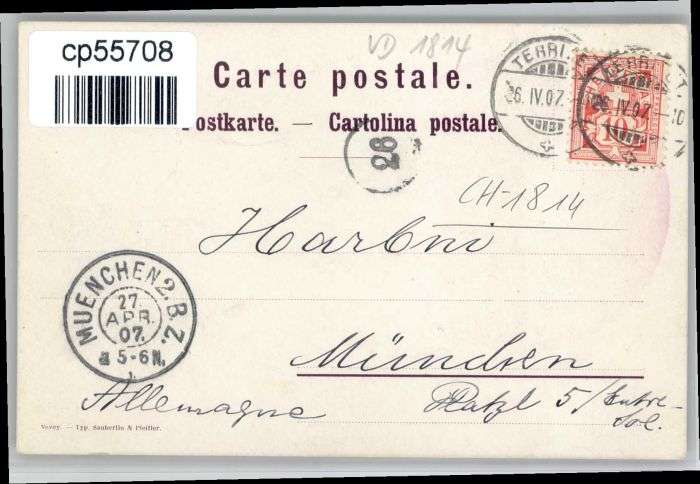 cp55708
VD 1814
Carte postale.
Postkarte. — Cartolina postale.
TERRI
26. IV. 07.
TERRI
26. IV. 07.
10
28
CH-1814
MUENCHEN 2. B.Z.
27.
APR.
07.
a 5-6N.
München
Allemagne
Platzl 5/Entre-
sol.
Vevey. — Typ. Säuberlin & Pfeiffer.